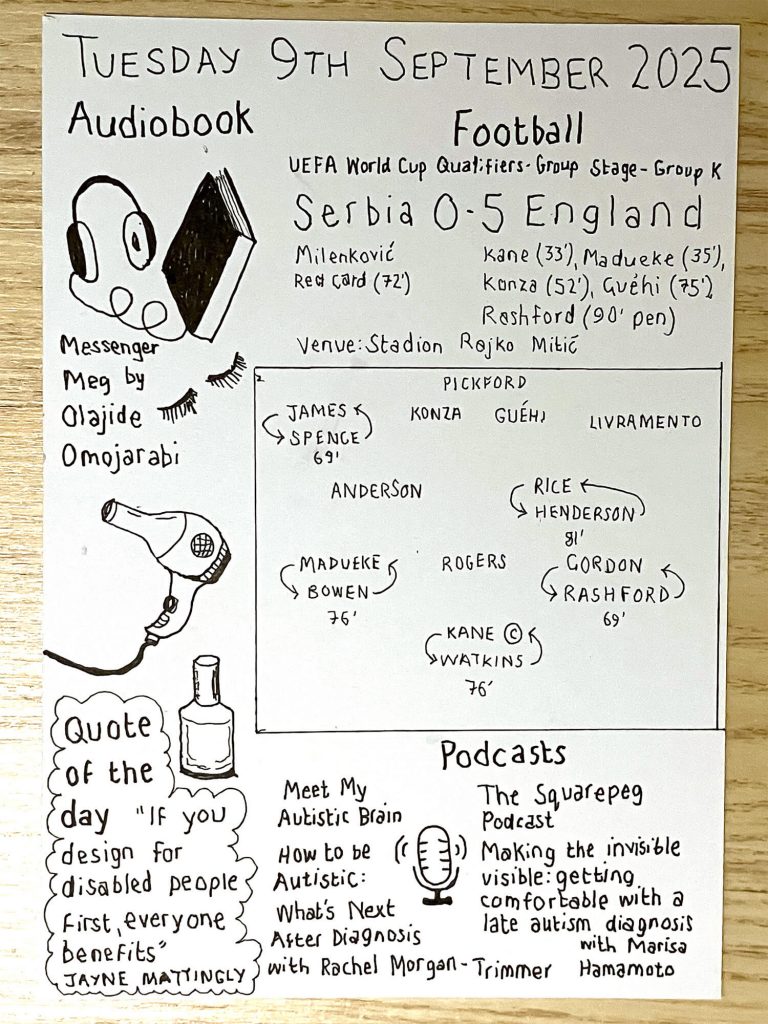 TUESDAY 9TH SEPTEMBER 2025
Audiobook
Messenger
Meg by
Olajide
Omojarabi
Football
UEFA World Cup Qualifiers-Group Stage-Group K
Serbia 0-5 England
Milenković
Red Card (72')
Kane (33'), Madueke (35'),
Konza (52'), Guéhi (75'),
Rashford (90' pen)
Venue: Stadion Rajko Mitić
PICKFORD
JAMES
SPENCE
69'
KONZA
GUÉHI
LIVRAMENTO
ANDERSON
RICE
HENDERSON
81'
MADUEKE
BOWEN
76'
ROGERS
GORDON
RASHFORD
69'
KANE ©
WATKINS
76'
Quote
of the
day "IF you
design for
disabled people
first, everyone
benefits"
JAYNE MATTINGLY
Podcasts
Meet My
Autistic Brain
How to be
Autistic:
What's Next
After Diagnosis
with Rachel Morgan-Trimmer
The Squarepeg
Podcast
Making the invisible
visible: getting
comfortable with a
late autism diagnosis
with Marisa
Hamamoto